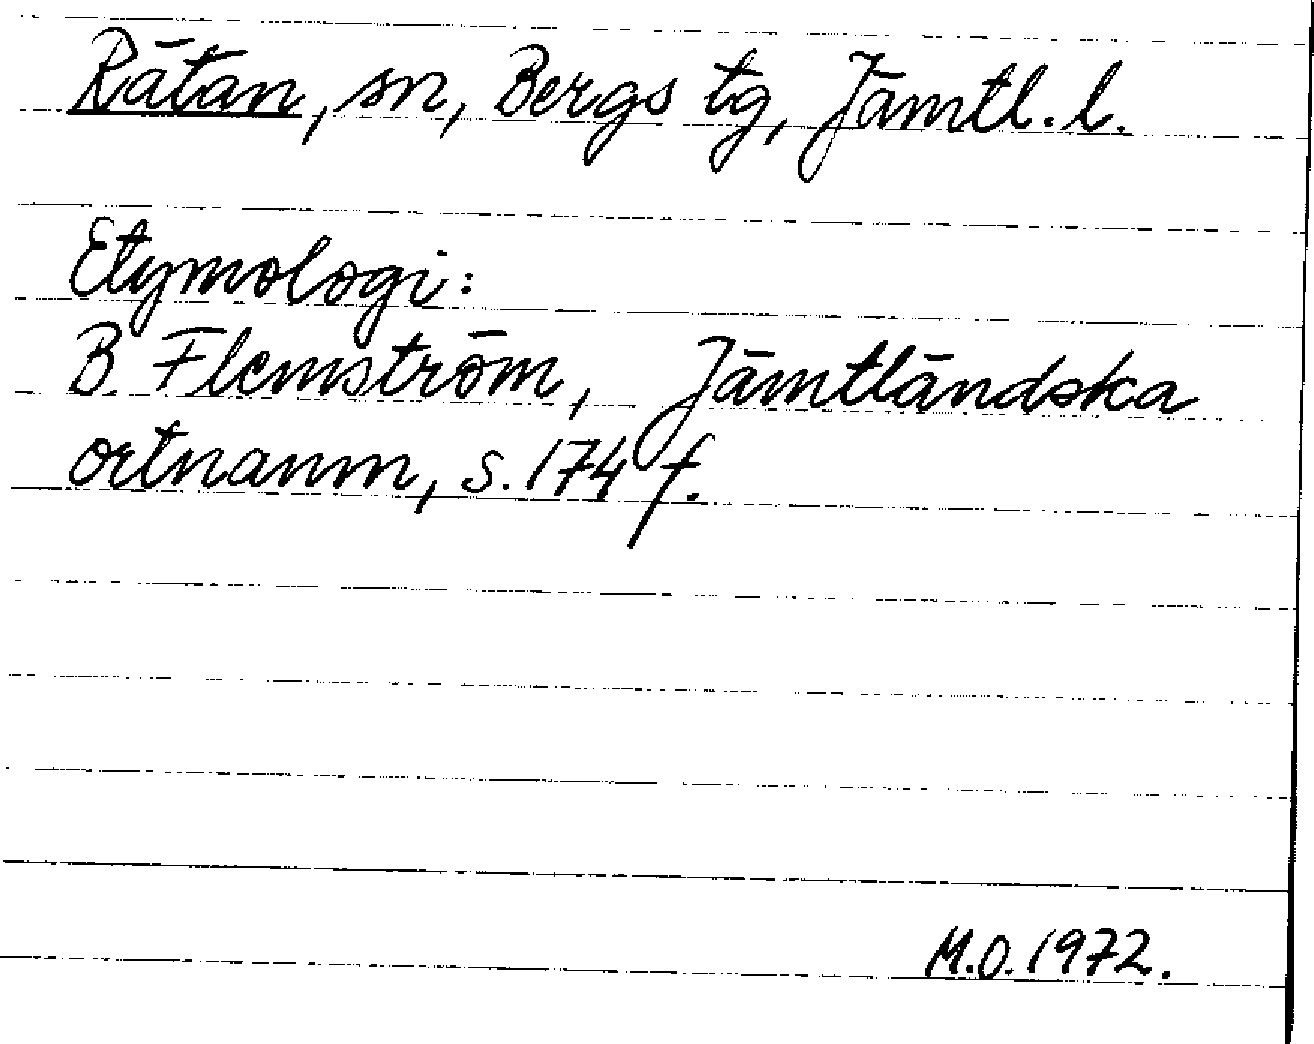 Rätan, sn, Bergs tg, Jämtl. l.
Etymologi:
B. Flemström, Jämtländska
ortnamn, s. 174 f.
M.O. 1972.